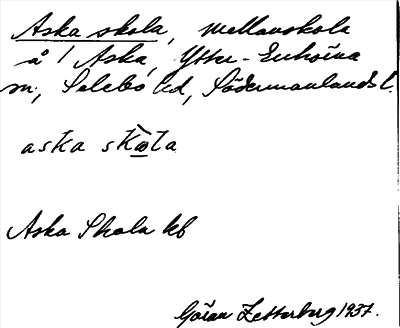 Aska skola, mellanskola
å 1 Aska, Ytter-Enhörna
sn, Selebo hd, Södermanlands l.
aska skola
Aska Skola kb
Göran Zetterberg 1937.